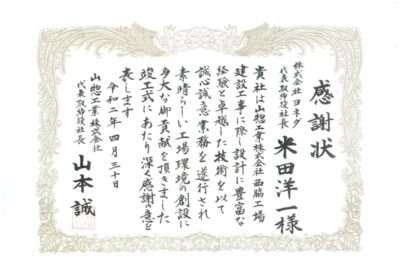 感謝状
株式会社 ヨネダ
代表取締役社長 米田洋一様
貴社は山惣工業株式会社西脇工場
建設工事に際し設計に豊富な
経験と卓越した技術を以て
誠心誠意業務を遂行され
素晴らしい工場環境の創設に
多大な御貢献を頂きました
竣工式にあたり深く感謝の意を
表します
令和二年四月三十日
山惣工業株式会社
代表取締役社長 山本誠